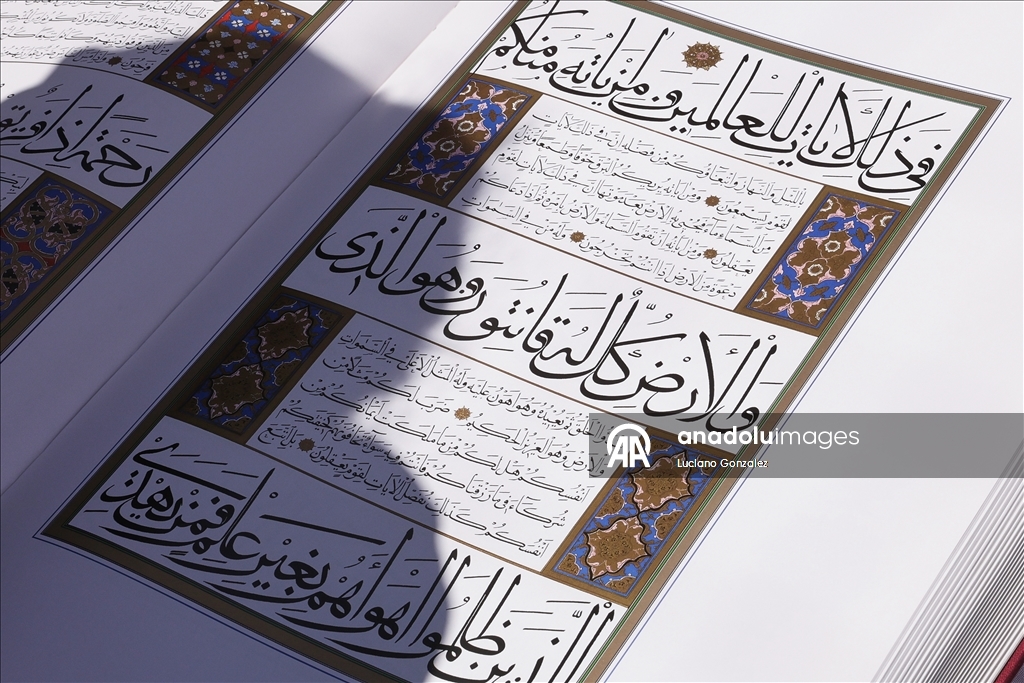 رحمة إذا فريق
في ذلك لآيات للعالمين ومن آياته منامكم
بالليل والنهار وابتغاؤكم من فضله إن في ذلك لآيات
لقوم يسمعون ومن آياته يريكم البرق خوفا وطمعا وينزل
من السماء ماء فيحيي به الأرض بعد موتها إن في ذلك لآيات لقوم
يعقلون ومن آياته أن تقوم السماء والأرض بأمره ثم إذا دعاكم
دعوة من الأرض إذا أنتم تخرجون وله من في السموات
والأرض كل له قانتون وهو الذي
الخلق ثم يعيده وهو أهون عليه وله المثل الأعلى في السموات
والأرض وهو العزيز الحكيم ضرب لكم مثلا من
أنفسكم هل لكم من ما ملكت أيمانكم من
شركاء في ما رزقناكم فأنتم فيه سواء تخافونهم كخيفتكم
أنفسكم كذلك نفصل الآيات لقوم يعقلون بل اتبع
الذين ظلموا أهواءهم بغير علم فمن يهدي
AA anadoluimages
Luciano Gonzalez